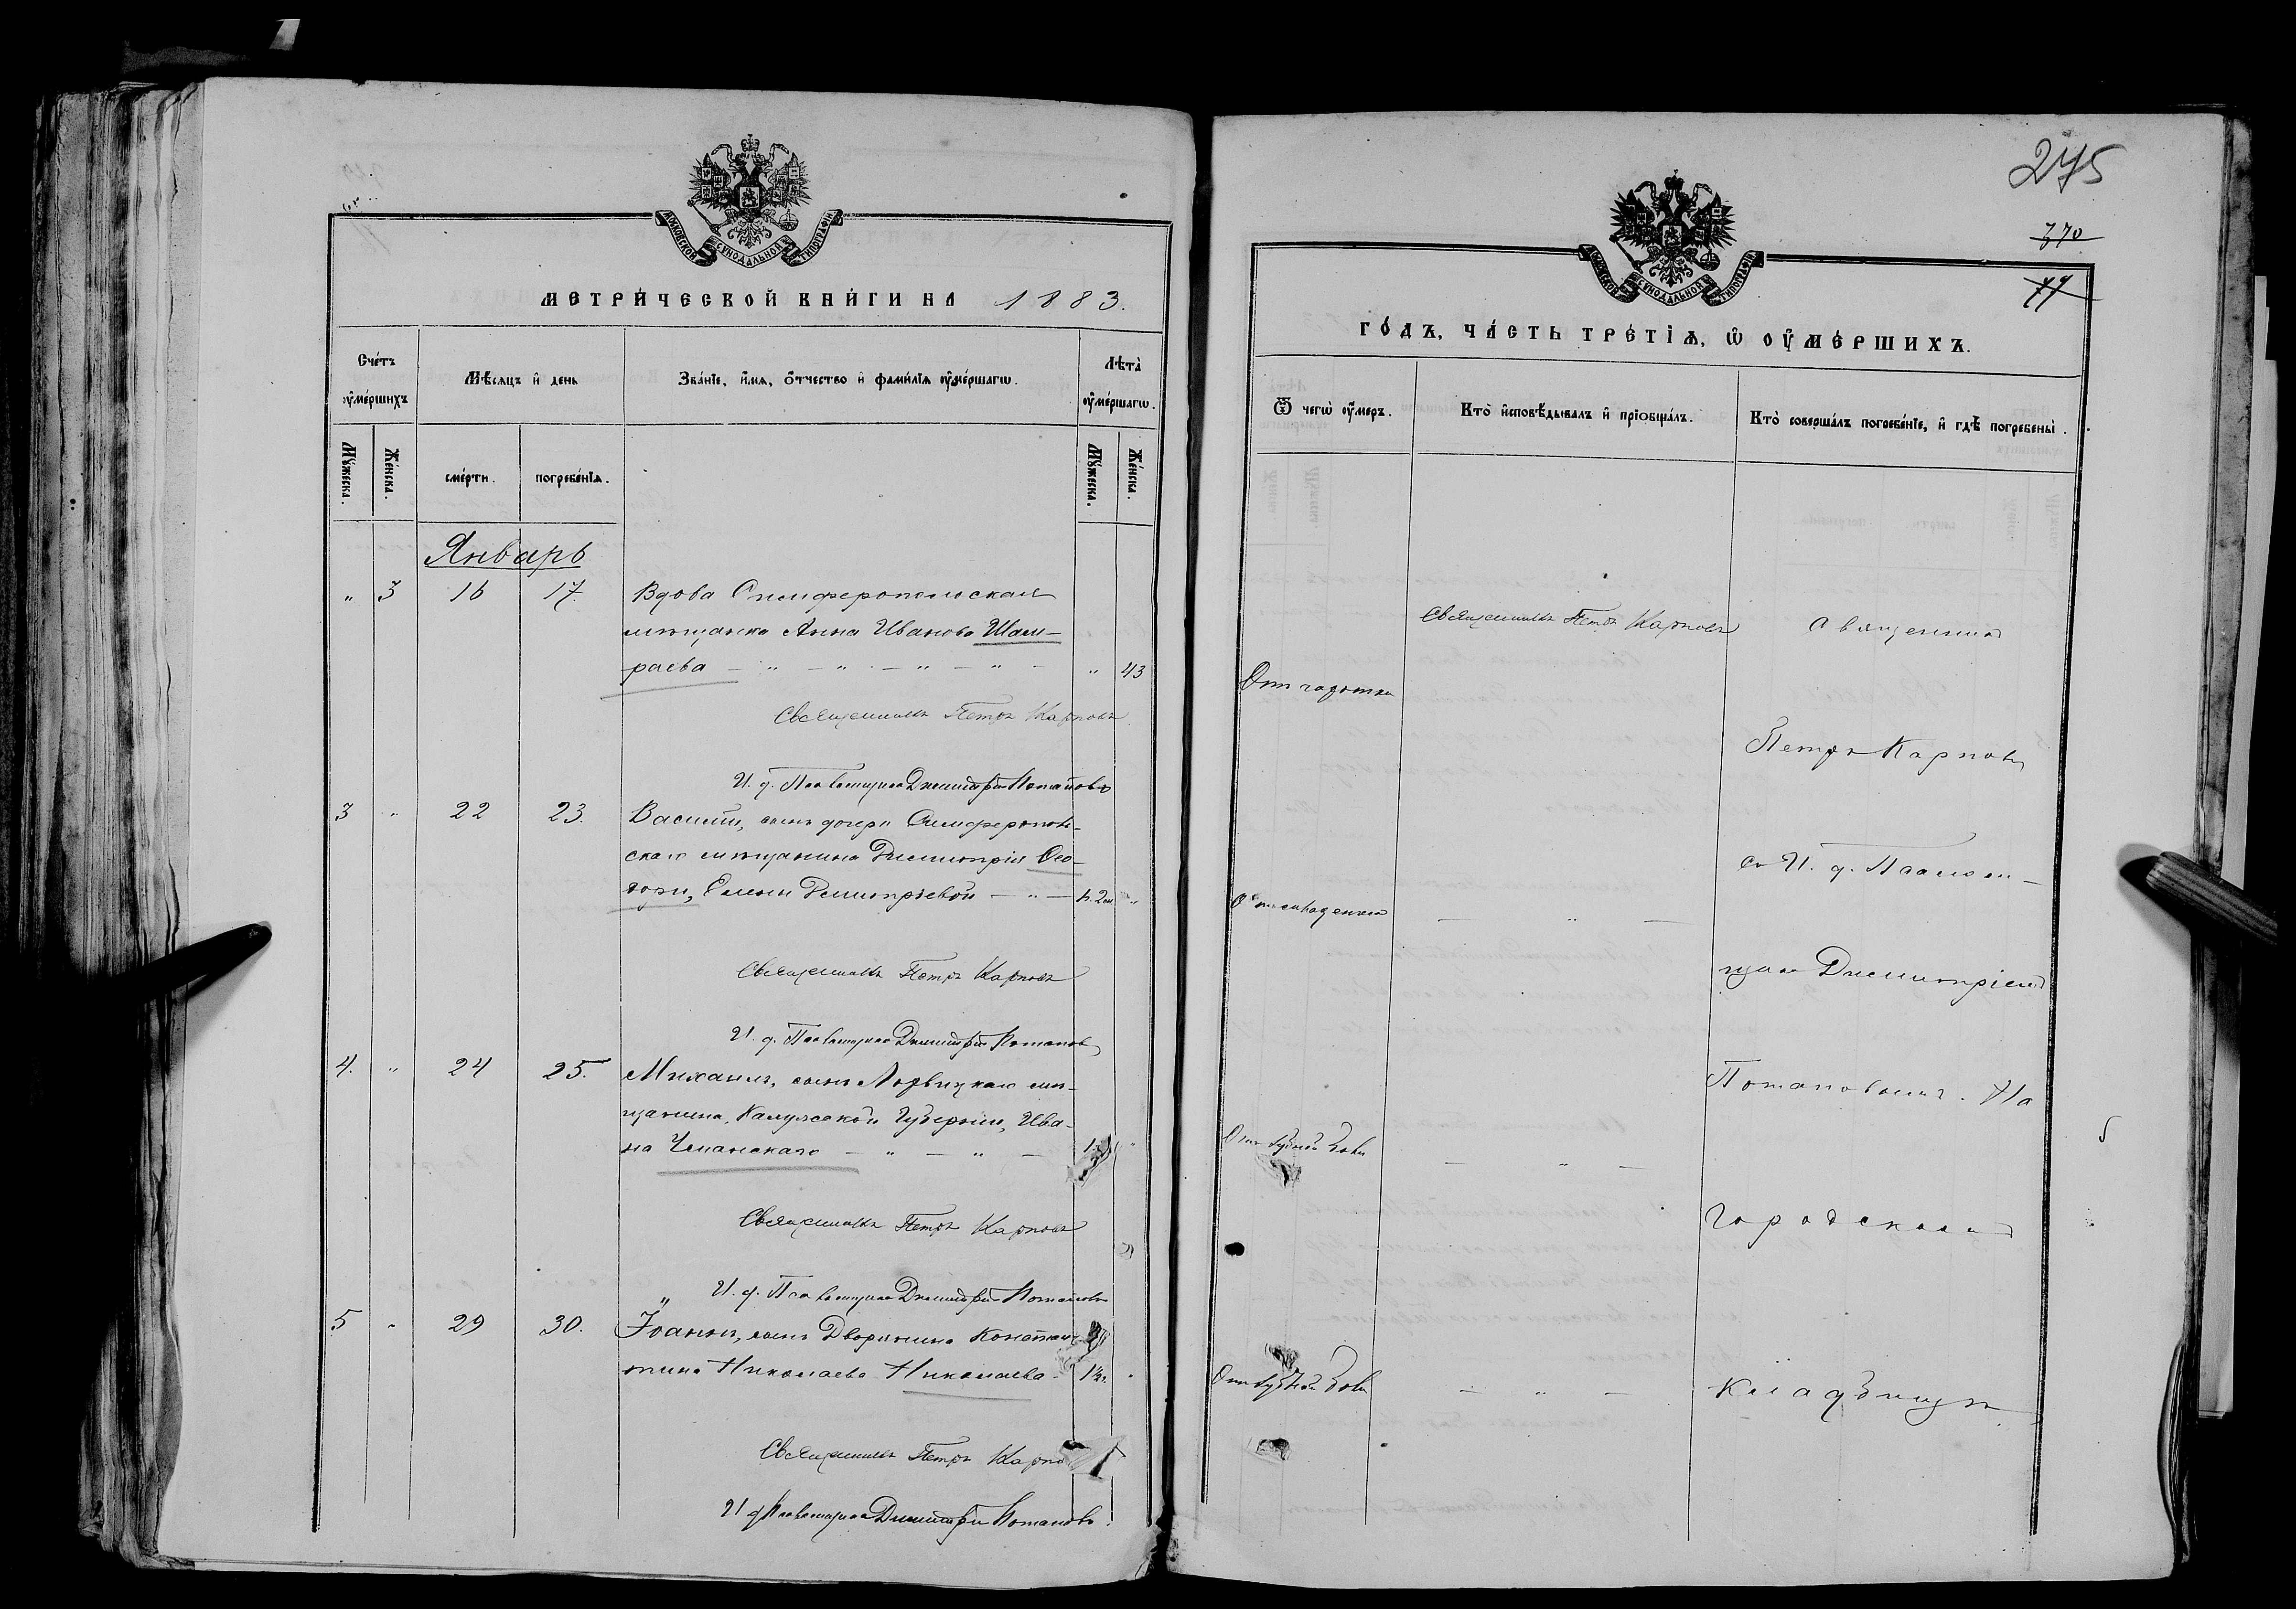 МОСКОВСКОЙ СѴНОДАЛЬНОЙ ТИПОГРАФІИ
МЕТРИ́ЧЕСКОЙ КНИ́ГИ НА 1883.
Сче́тъ ᲂу҆ме́ршихъ
Мѣ́сяцъ и҆ день
Зва́нїе, и҆́мѧ, ѻ҆́тчество и҆ фами́лїѧ ᲂу҆ме́ршагѡ.
Лѣ́та ᲂу҆ме́ршагѡ.
Мꙋ́жеска.
Же́нска.
сме́рти.
погребе́нїѧ.
Мꙋ́жеска.
Же́нска.
Январь
" 3 16 17. Вдова Симферопольская
мѣщанка Анна Иванова Шам-
раева — " — " — " — " — " 43
Священникъ Петръ Карповъ
И. д. Псаломщика Димитрій Потаповъ
3 " 22 23. Василій, сынъ дочери Симферополь-
скаго мѣщанина Димитрія Ѳео-
Елены Димитріевой — " — 2 м. "
Священникъ Петръ Карповъ
И. д. Псаломщика Димитрій Потаповъ
4. " 24 25. Михаилъ, сынъ Лихвицкаго мѣ-
щанина, Калужской Губерніи, Ива-
на — " — " —
Священникъ Петръ Карповъ
И. д. Псаломщика Димитрій Потаповъ
5 " 29 30. Іоаннъ, сынъ Дворянина Констан-
тина Николаева Николаева —
Священникъ Петръ
И. д. Псаломщика Димитрій Потаповъ.
275
370
МОСКОВСКОЙ СѴНОДАЛЬНОЙ ТИПОГРАФІИ
ГО́ДЪ, ЧА́СТЬ ТРЕ́ТЇѦ, Ѡ҆ ОУ҆МЕ́РШИХЪ.
Ѿ чегѡ̀ ᲂу҆́меръ.
Кто̀ и҆сповѣ́дывалъ и҆ прїѡбща́лъ.
Кто̀ соверша́лъ погребе́нїе, и҆ гдѣ̀ погребены̀.
Священникъ Петръ Карповъ
Священникъ
Отъ чахотки
Петръ Карповъ
съ И. д. Псалом-
— " —
щика Димитріемъ
Потаповымъ. На
Отъ зубной боли
— " —
городскомъ
Отъ зубной боли
— " —
кладбищѣ.